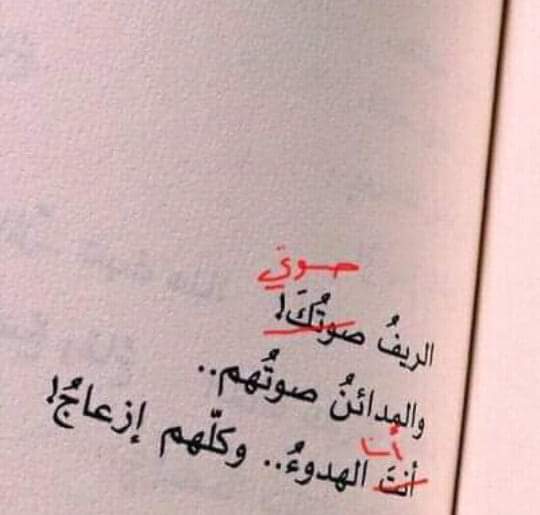 صوتي
الريفُ صوتُكَ!
والمدائنُ صوتُهم..
أنا
أنتَ الهدوءُ.. وكلّهم إزعاجُ!